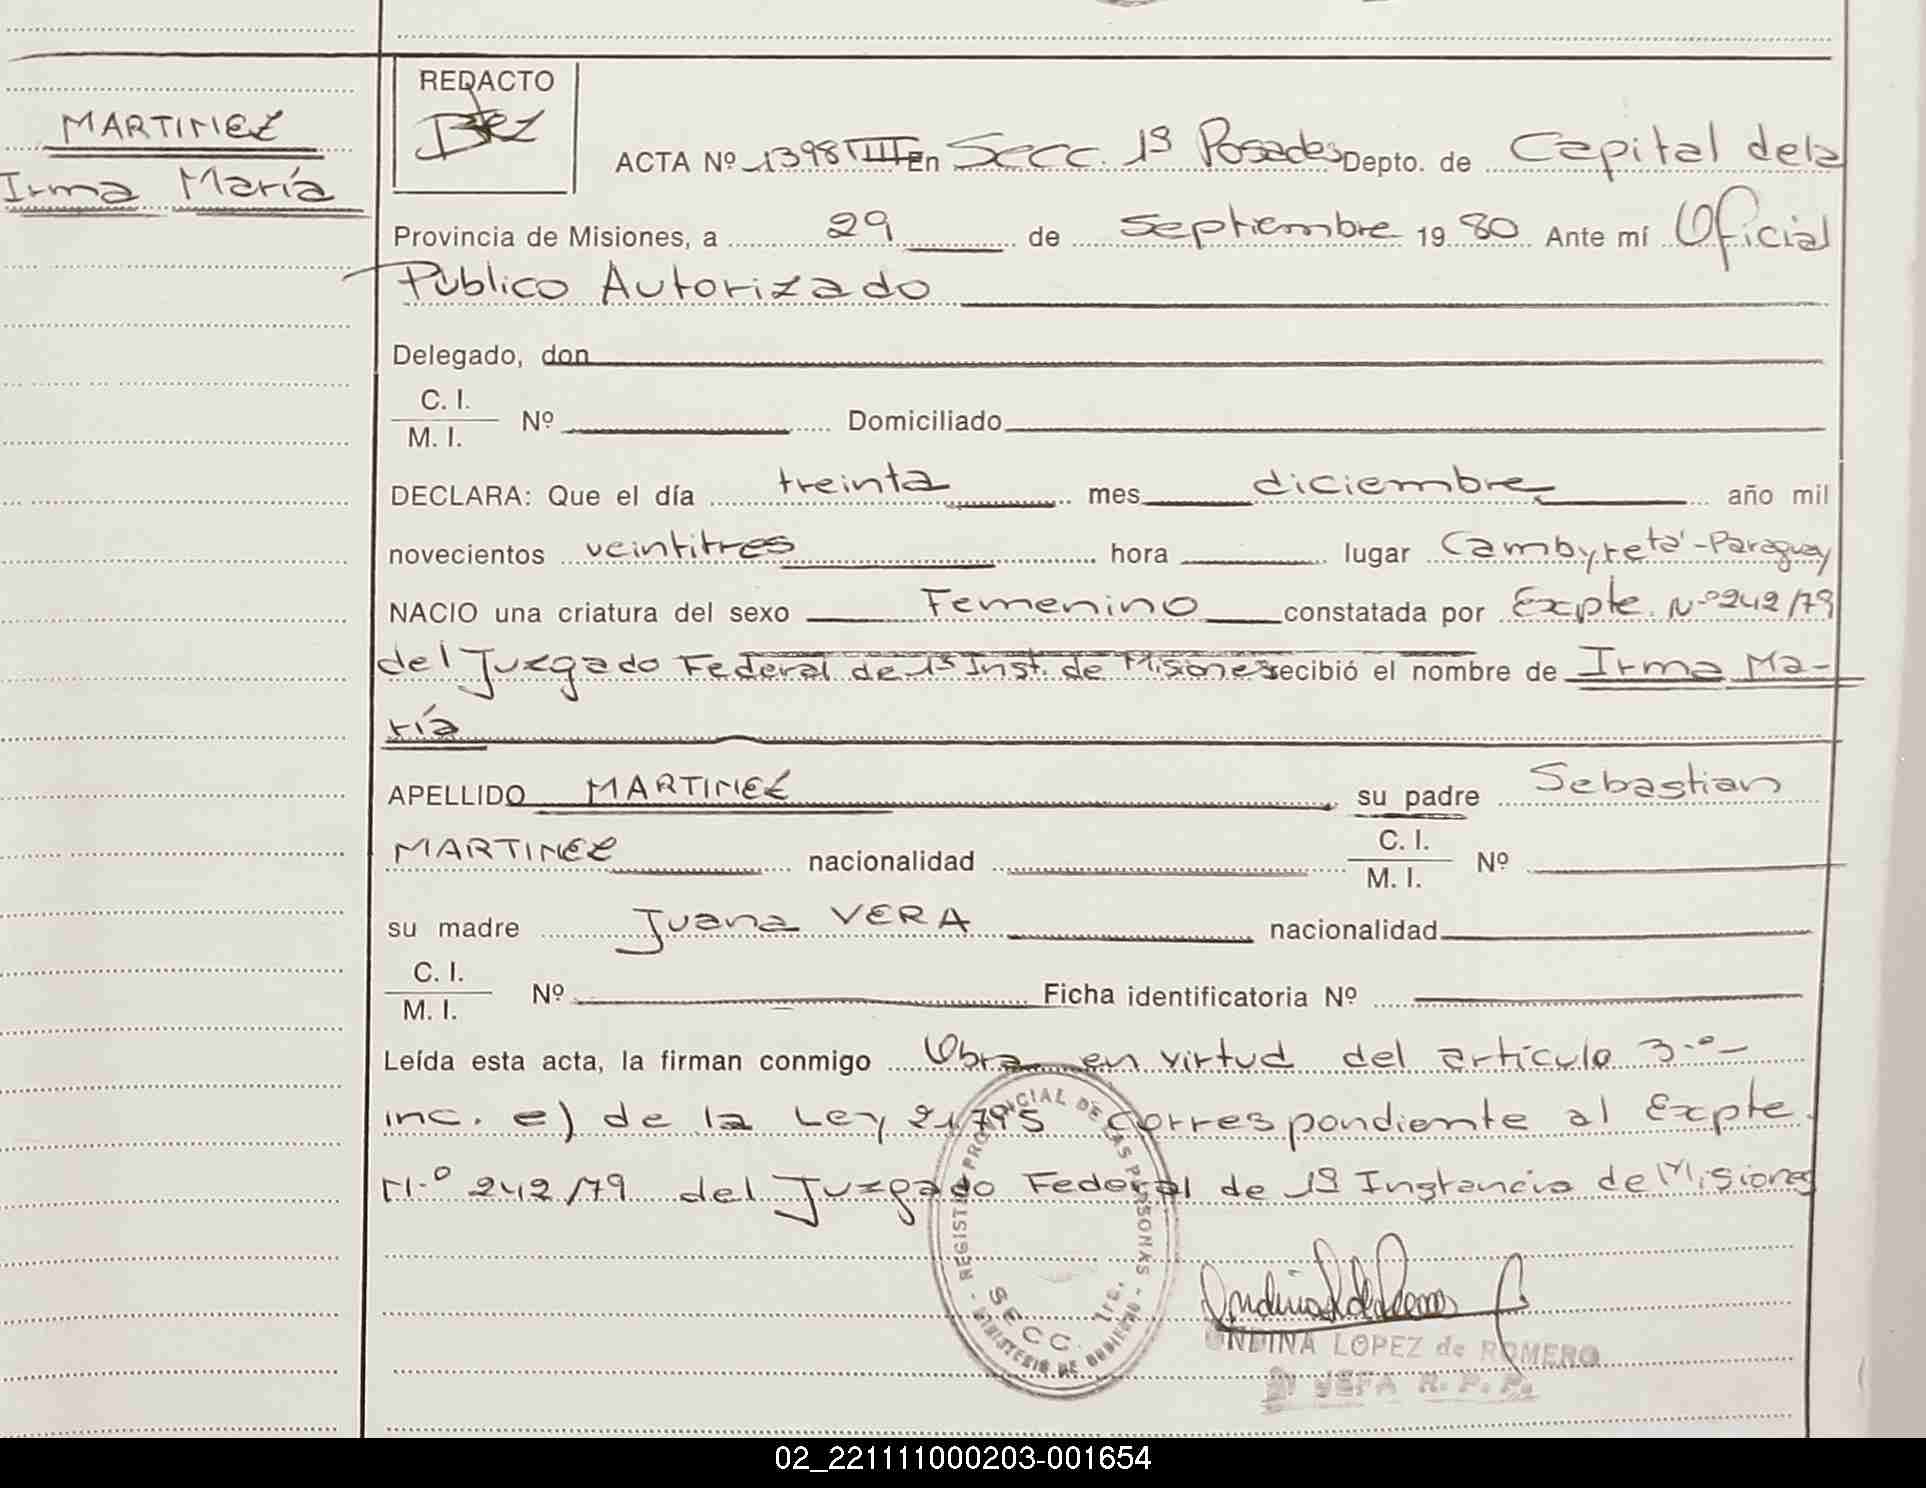 REDACTO
MARTINEZ
Irma María
ACTA Nº 1398 III En Secc. 1ª Posadas Depto. de Capital de la
Provincia de Misiones, a 29 de Septiembre 19 80 Ante mí Oficial
Público Autorizado
Delegado, don
C. I.
M. I.
Nº Domiciliado
DECLARA: Que el día treinta mes diciembre año mil
novecientos veintitres hora lugar Cambyretá - Paraguay
NACIO una criatura del sexo Femenino constatada por Expte. Nº 242/79
del Juzgado Federal de 1ª Inst. de Misiones recibió el nombre de Irma Ma-
ría
APELLIDO MARTINEZ su padre Sebastian
MARTINEZ nacionalidad C. I. Nº
M. I.
su madre Juana VERA nacionalidad
C. I.
M. I.
Nº Ficha identificatoria Nº
Leída esta acta, la firman conmigo Obra en virtud del artículo 3.º-
inc. e) de la Ley 21.795 correspondiente al Expte.
N.º 242/79 del Juzgado Federal de 1ª Instancia de Misiones
REGISTRO PROVINCIAL DE LAS PERSONAS
SECC. 1ra.
MINISTERIO DE GOBIERNO
UNDINA LOPEZ de ROMERO
JEFA R. P. P.
02_221111000203-001654